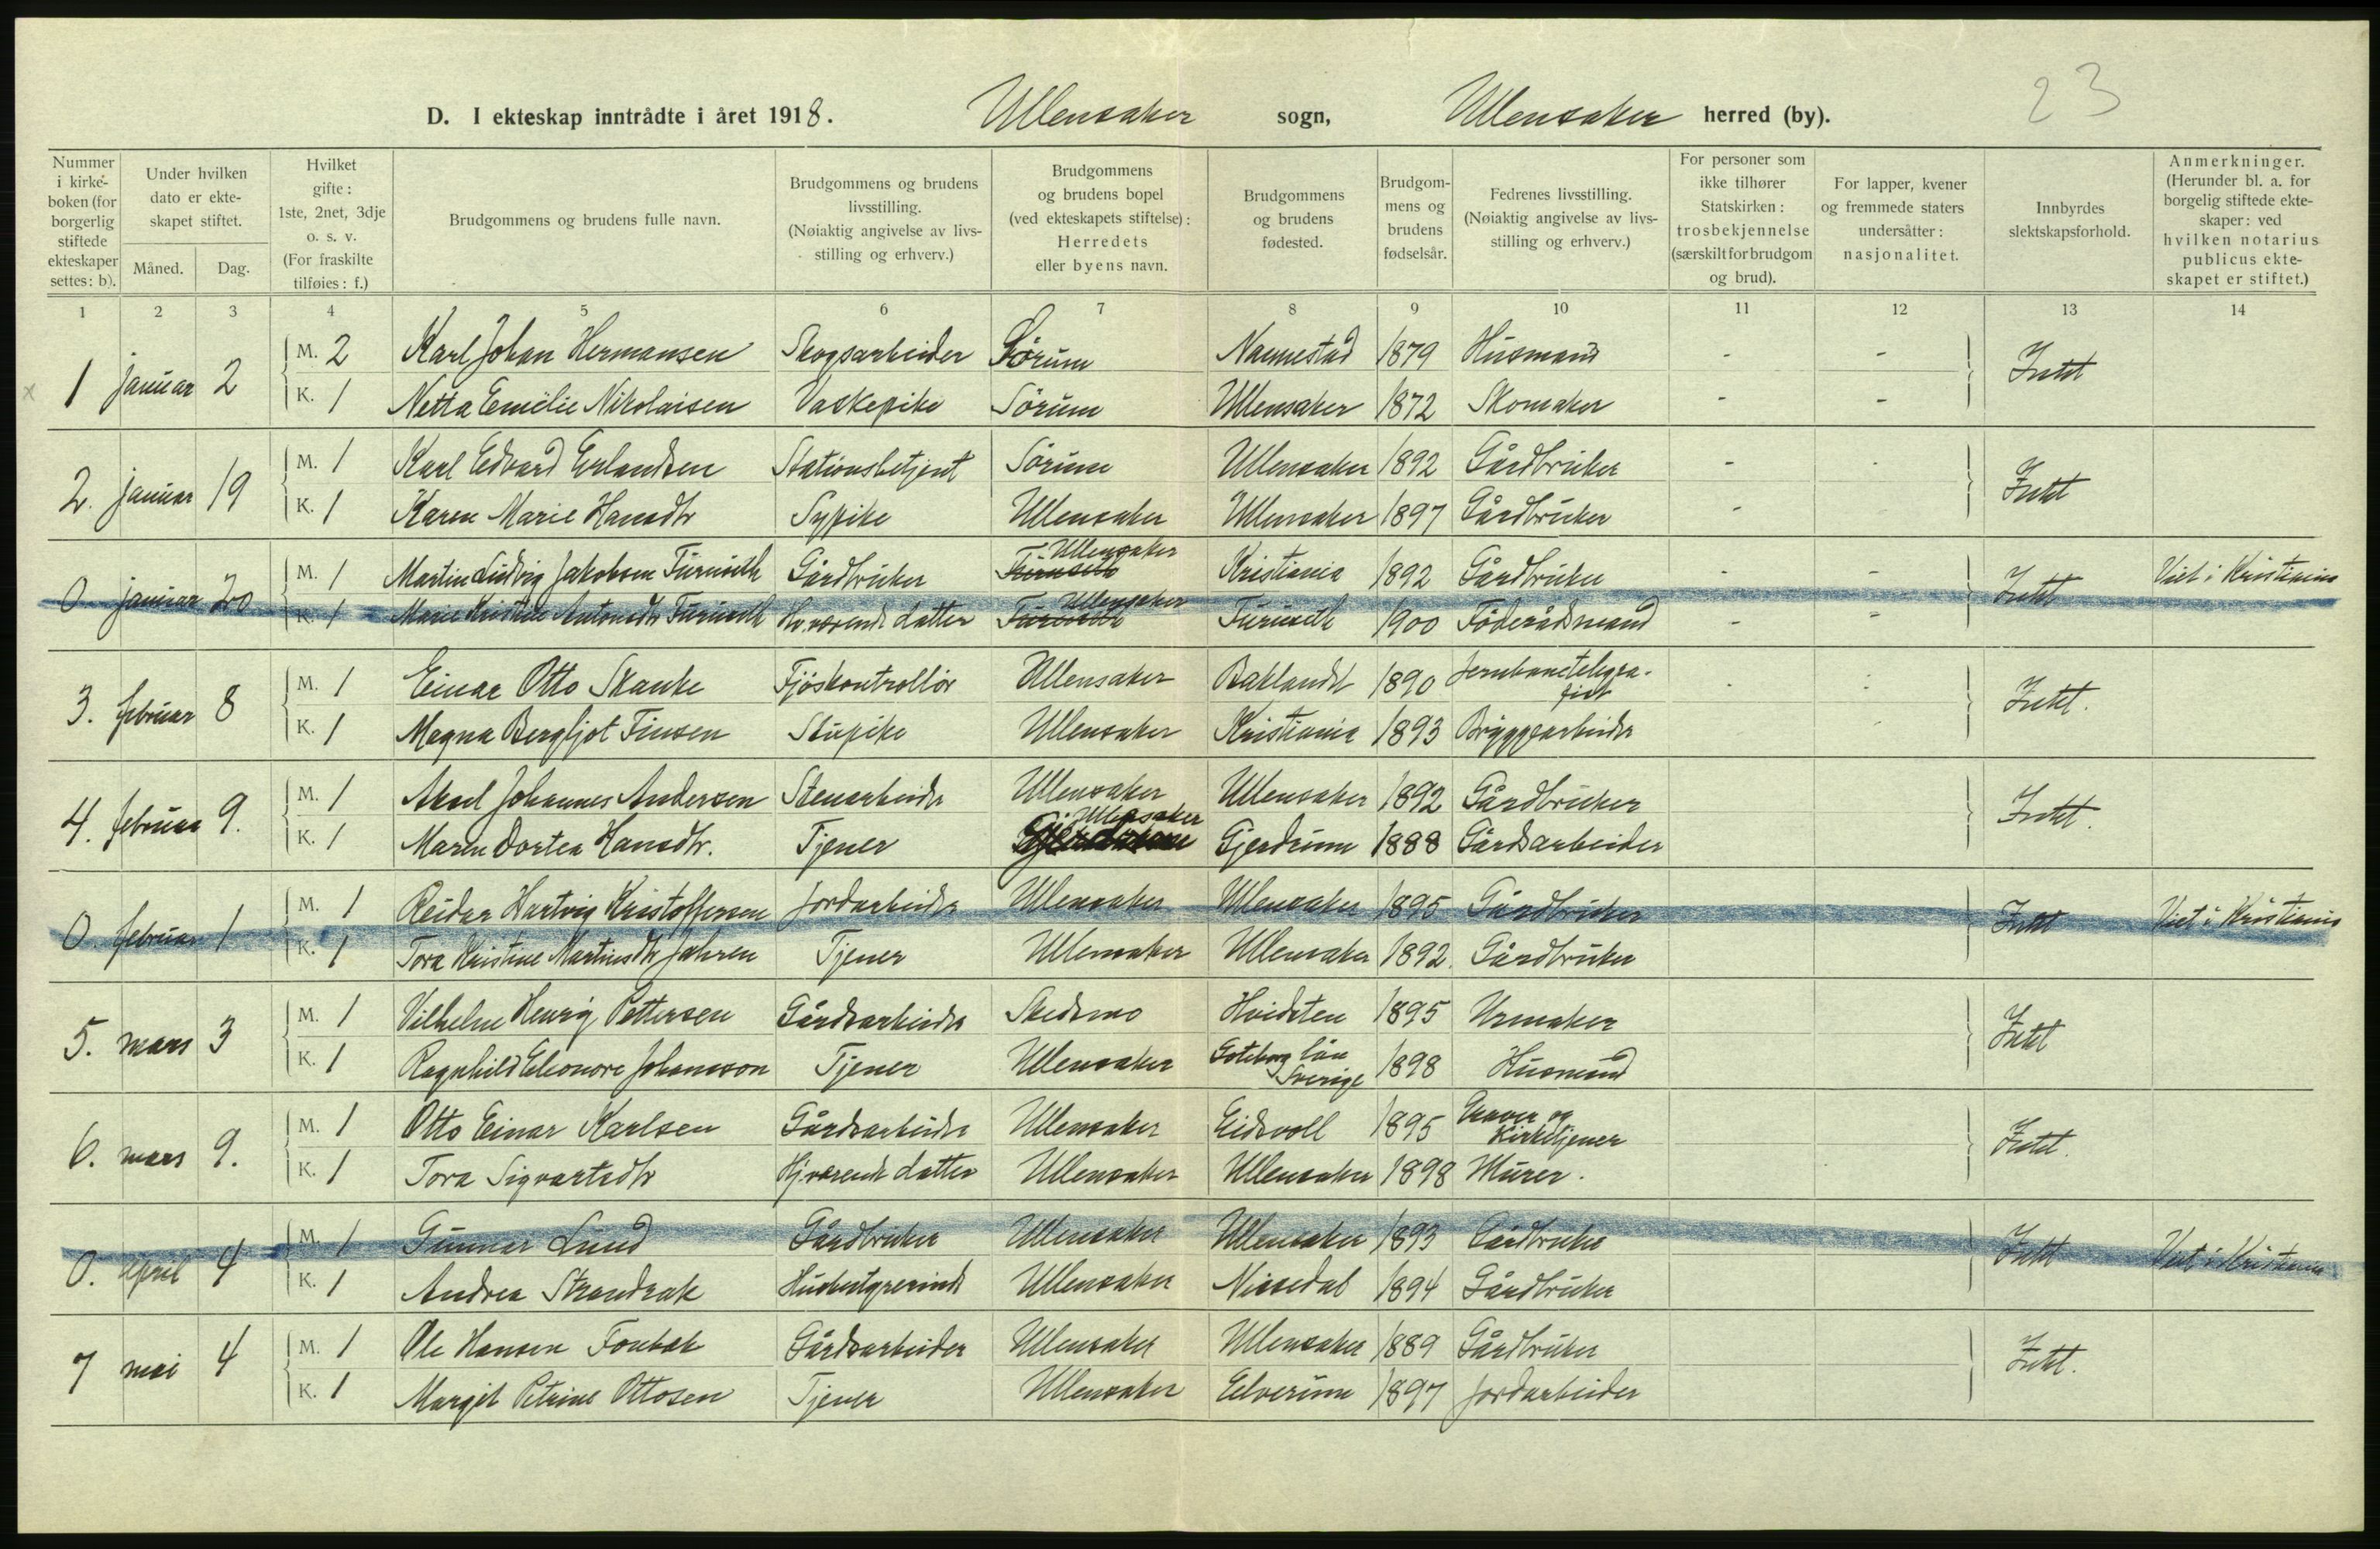 D. I ekteskap inntrådte i året 1918. Ullensaker sogn, Ullensaker herred (by). 23
Nummer i kirkeboken (for borgerlig stiftede ekteskaper settes: b).
Under hvilken dato er ekteskapet stiftet.
Måned. Dag.
Hvilket gifte: 1ste, 2net, 3dje o. s. v. (For fraskilte tilføies: f.)
Brudgommens og brudens fulle navn.
Brudgommens og brudens livsstilling. (Nøiaktig angivelse av livsstilling og erhverv.)
Brudgommens og brudens bopel (ved ekteskapets stiftelse): Herredets eller byens navn.
Brudgommens og brudens fødested.
Brudgommens og brudens fødselsår.
Fedrenes livsstilling. (Nøiaktig angivelse av livsstilling og erhverv.)
For personer som ikke tilhører Statskirken: trosbekjennelse (særskilt for brudgom og brud).
For lapper, kvener og fremmede staters undersåtter: nasjonalitet.
Innbyrdes slektskapsforhold.
Anmerkninger. (Herunder bl. a. for borgelig stiftede ekteskaper: ved hvilken notarius publicus ekteskapet er stiftet.)
1 2 3 4 5 6 7 8 9 10 11 12 13 14
1 januar 2 M. 2 Karl Johan Hermansen Skogsarbeider Sörum Nannestad 1879 Husmand - - Intet
K. 1 Netta Emilie Nikolaisen Vaskepike Sörum Ullensaker 1872 Skomaker - -
2. januar 19 M. 1 Karl Edvard Erlandsen Stationsbetjent Sörum Ullensaker 1892 Gårdbruker - - Intet
K. 1 Karen Marie Hansdtr Sypike Ullensaker Ullensaker 1897 Gårdbruker -
0 januar 20 M. 1 Martin Ludvig Jakobsen Furuseth Gårdbruker Furuseth Ullensaker Kristiania 1892 Gårdbruker - - Intet Viet i Kristiania
K. 1 Marie Kristine Antonsdtr Furuseth Hj.værende datter Furuseth Ullensaker Furuseth 1900 Föderådsmand - -
3. februar 8 M. 1 Einar Otto Skanke Fjöskontrollör Ullensaker Baklandet 1890 Jernbanetelegrafist Intet.
K. 1 Magna Bergljot Finsen Stupike Ullensaker Kristiania 1893 Bryggearbeider
4. februar 9. M. 1 Aksel Johannes Andersen Stenarbeider Ullensaker Ullensaker 1892 Gårdbruker Intet.
K. 1 Maren Dortea Hansdtr. Tjener Gjerdrum Ullensaker Gjerdrum 1888 Gårdsarbeider
0. februar 1 M. 1 Reidar Hartvig Kristoffersen Jordarbeider Ullensaker Ullensaker 1895 Gårdbruker Intet Viet i Kristiania
K. 1 Tora Kristine Martinsdtr Jahren Tjener Ullensaker Ullensaker 1892. Gårdbruker
5. mars 3 M. 1 Vilhelm Henrig Pettersen Gårdsarbeider Skedsmo Hvidsten 1895 Urmaker Intet
K. 1 Ragnhild Eleonore Johansson Tjener Ullensaker Goteborg län Sverige 1898 Husmand
6. mars 9. M. 1 Otto Einar Karlsen Gårdsarbeider Ullensaker Eidsvoll 1895 Graver og Kirketjener Intet.
K. 1 Tora Sigvartsdtr Hj.værende datter Ullensaker Ullensaker 1898 Murer.
0. april 4 M. 1 Gunnar Lund Gårdbruker Ullensaker Ullensaker 1893 Gårdbruker Intet Viet i Kristiania
K. 1 Andrea Strandrak Husbestyrerinde Ullensaker Nissedal 1894 Gårdbruker
7 mai 4 M. 1 Ole Hansen Fonbæk Gårdsarbeider Ullensaker Ullensaker 1889 Gårdbruker Intet.
K. 1 Margit Petrine Ottosen Tjener Ullensaker Elverum 1897 Jordarbeider